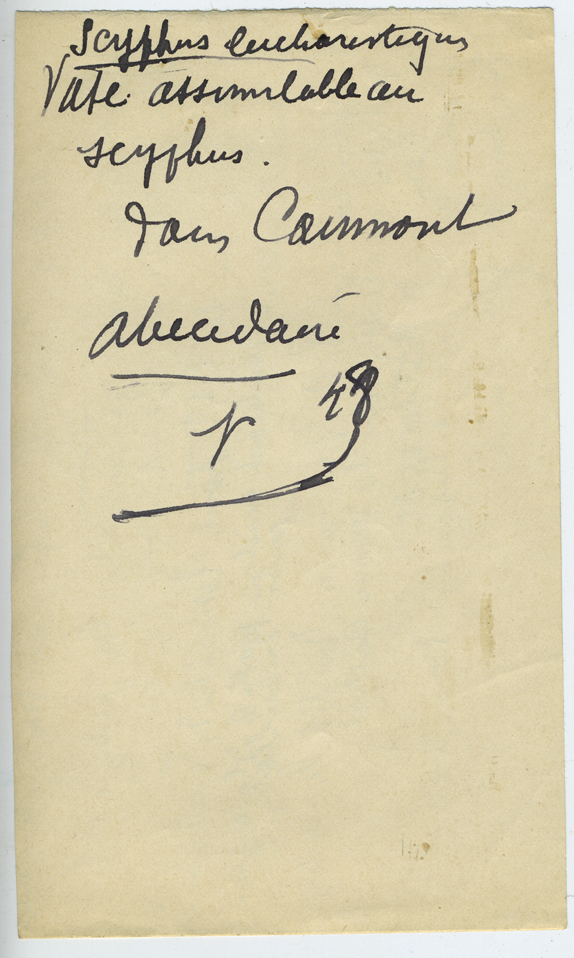 Scyphus eucharistique
Vase assimilable au
scyphus.
dans Caumont
abécédaire
V 48